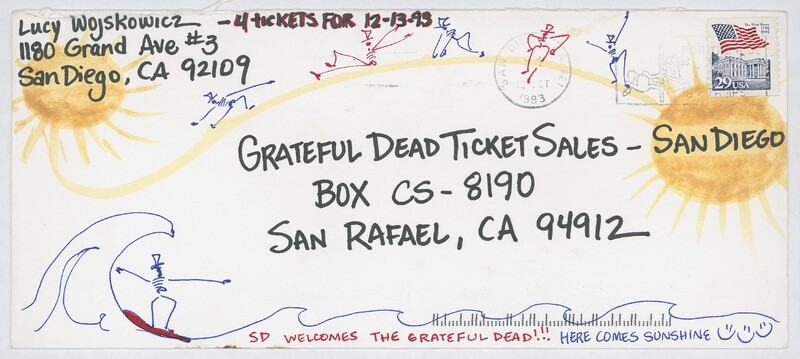 Lucy Wojskowicz - 4 tickets for 12-13-93
1180 Grand Ave #3
San Diego, CA 92109
SAN DI
1993
29 USA
GRATEFUL DEAD TICKET SALES - SAN DIEGO
BOX CS-8190
SAN RAFAEL, CA 94912
SD WELCOMES THE GRATEFUL DEAD!!! HERE COMES SUNSHINE